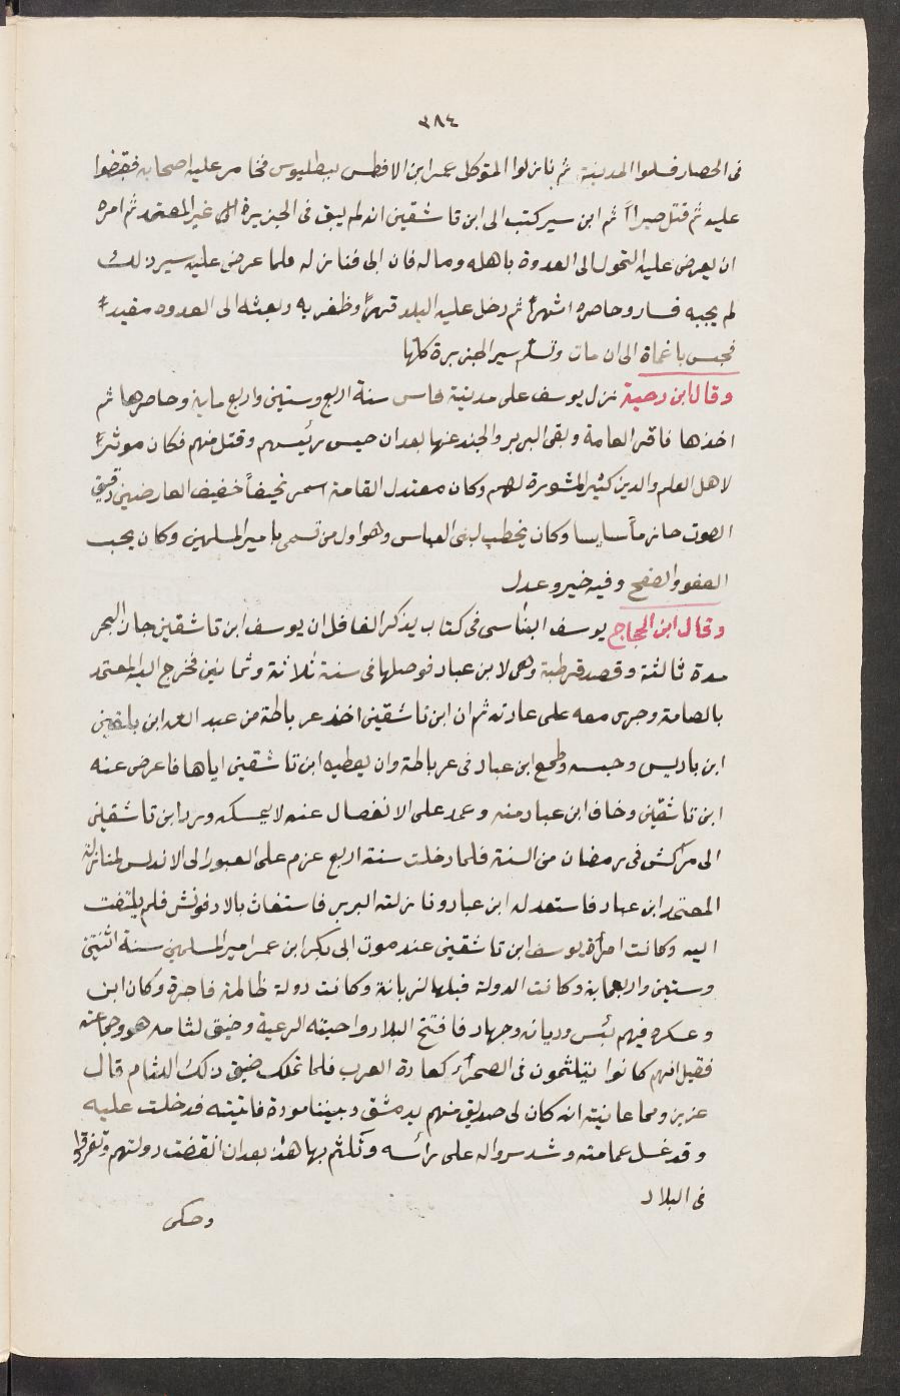 ٣٨٤
فى الحصار فسلوا المدينة ثم نازلوا المتوكل عمر ابن الافطس ببطليوس فخامر عليه اصحابه فقبضوا
عليه ثم قتل صبراً ثم ابن سير كتب الى ابن تاشقين انه لم يبق فى الجزيرة الى غير المعتمد ثم امره
ان يعرض عليه التحول الى العدوة باهله وماله فان ابى فنازله فلما عرض عليه سير ذلك
لم يجبه فسار وحاصره اشهراً ثم دخل عليه البلد قهراً وظفر به وبعثه الى العدوه مقيداً
فحبس باغماة الى ان مات وتسلم سير الجزيرة كلها
وقال ابن دحية نزل يوسف على مدينة فاس سنة اربع وستين واربع ماية وحاصرها ثم
اخذها فاقر العامة وبقى البربر والجند عنها بعد ان حبس رئيسهم وقتل منهم فكان موثراً
لاهل العلم والدين كثير المشورة لهم وكان معتدل القامة اسمر نحيفاً خفيف العارضين دقيق
الصوت حازماً سايسا وكان يخطب لبنى العباس وهو اول من تسمى بامير المسلمين وكان يحب
العفو والصفح وفيه خير وعدل
وقال ابن الحجاج يوسف البناسى فى كتاب يذكر الغافل ان يوسف ابن تاشقين جاز البحر
مدة ثالثة وقصد قرطبة وهى لابن عباد فوصلها فى سنة ثلاثة وثمانين فخرج اليه المعتمد
بالضامة وجرى معه على عادته ثم ان ابن تاشقين اخذ عرباطة من عبد الله ابن بلقين
ابن باديس وحبسه وطمع ابن عباد فى عرباطة وان يعطيه ابن تاشقين اياها فاعرض عنه
ابن تاشقين وخاف ابن عباد منه وعمد على الانفصال عنه لا يمسكه ورد ابن تاشقين
الى مراكش فى رمضان من السنة فلما دخلت سنة اربع عزم على العبور الى الاندلس لمنازلة
المعتمد ابن عباد فاستعد له ابن عباد ونازلته البربر فاستغاث بالادفونش فلم يلتفت
اليه وكانت امرأة يوسف ابن تاشقين عند موت ابى بكر ابن عمر امير المسلمين سنة اثنتين
وستين واربعماية وكانت الدولة قبلها لزناتة وكانت دولة ظالمة فاجرة وكان ابن
وعسكره فيهم يئس وديانه وجهاد فافتتح البلاد واحبته الرعية وضيق لثامه هو وجماعته
فقيل انهم كانوا يتلثمون فى الصحراء كعادة العرب فلما تملك ضيق ذلك اللثام قال
عزيز ومما عاينته انه كان لى صديق منهم بدمشق وبيننا مودة فاتيته فدخلت عليه
وقد غسل عمامته وشد سرواله على رأسه وتلثم بها هذا بعد ان انقضت دولتهم وتفرقوا
فى البلاد
وحكى